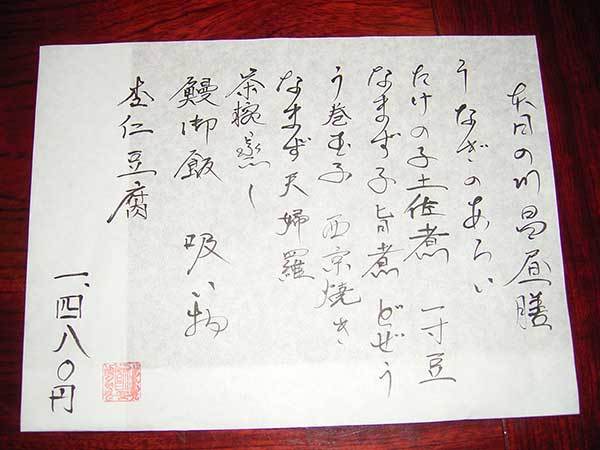 本日の川昌昼膳
うなぎのあらい
たけの子土佐煮 一寸豆
なまず子旨煮 どぜう
う巻玉子 西京焼き
なまず天婦羅
茶碗蒸し
鰻御飯 吸い物
杏仁豆腐
一、四八〇円